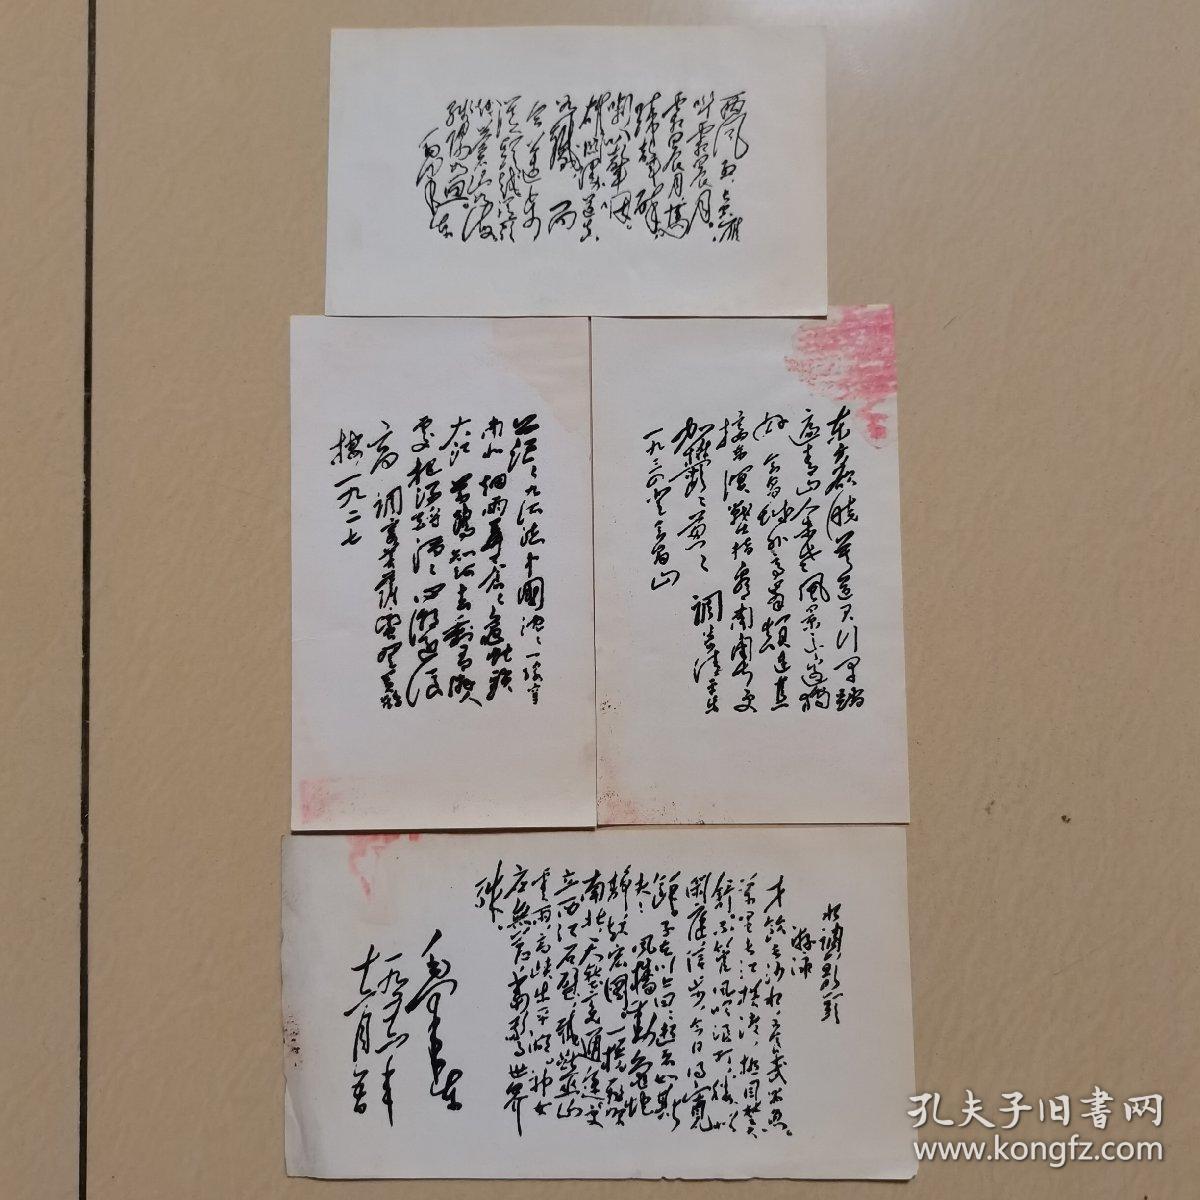 西风烈,长空雁
叫霜晨月。
霜晨月,马
蹄声碎,
喇叭声咽。
雄关漫道真
如铁,而
今迈步
从头越。从头
越,苍山如海,
残阳如血。
毛泽东
东方欲晓莫道君行早踏
遍青山人未老风景这边独
好 会昌城外高峰颠连直
接东溟战士指看南粤更
加鬱〻葱〻 调寄清平乐
一九三四登会昌山
茫〻九派流中國沈〻一线穿
南北烟雨莽苍〻龟蛇锁
大江 黄鹤知何去剩有游人
处把酒酹滔〻心潮逐浪
高 调寄菩萨蛮登黄鹤
楼 一九二七
水调歌头
游泳
才饮长沙水,又食武昌鱼。
万里长江横渡,极目楚天
舒。不管风吹浪打,胜似
闲庭信步,今日得宽
馀。子在川上曰:逝者如斯
夫!风樯动,龟蛇
静,起宏图。一桥飞架
南北,天堑变通途。更
立西江石壁,截断巫山
云雨,高峡出平湖。神女
应無恙,当惊世界
殊。
毛泽东
一九五六年
十二月五日
孔夫子旧书网
www.kongfz.com